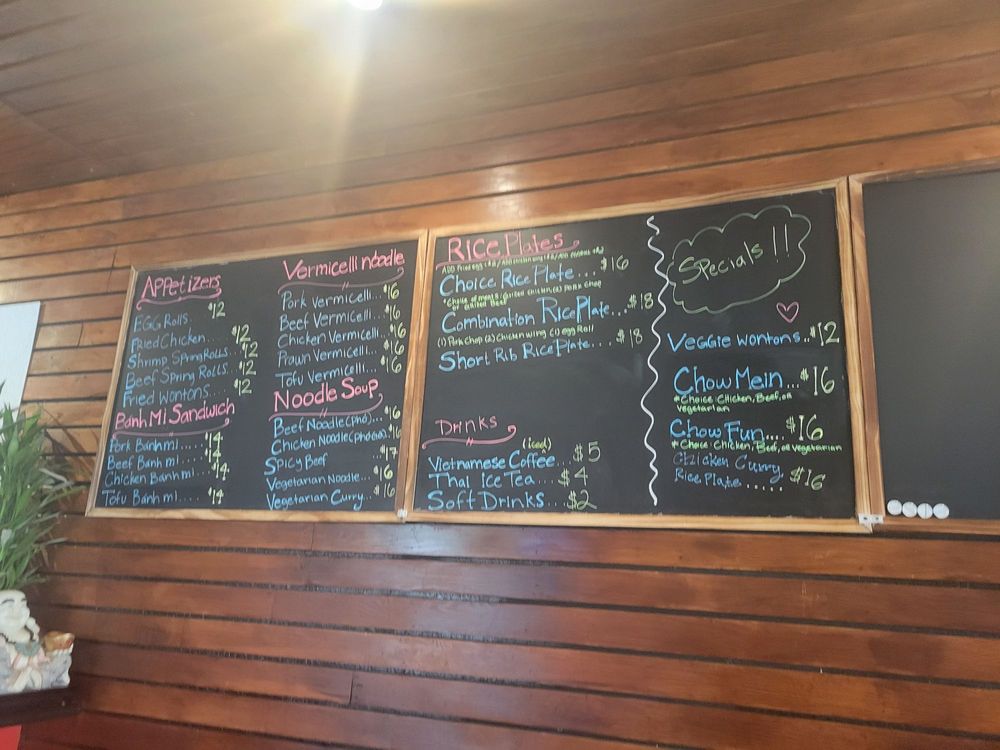 Appetizers
EGG Rolls $12
Fried Chicken... $12
Shrimp Spring Rolls.. $12
Beef Spring Rolls.. $12
Fried Wontons... $12
Banh Mi Sandwich
Pork Banh mi.... $14
Beef Banh mi.... $14
Chicken Banh mi... $14
Tofu Banh mi.... $14
Vermicelli noodle
Pork Vermicelli... $16
Beef Vermicelli... $16
Chicken Vermicelli.. $16
Prawn Vermicelli... $16
Tofu Vermicelli... $16
Noodle Soup
Beef Noodle (pho)... $16
Chicken Noodle (pho Ga).. $16
Spicy Beef $17
Vegetarian Noodle... $16
Vegetarian Curry... $16
Rice Plates
ADD Fried egg
Choice Rice Plate.... $16
*Choice of meats: Grilled Chicken, (2) Pork Chop
or Grilled Beef
Combination Rice Plate... $18
(1) Pork Chop (2) Chicken wing (1) egg Roll
Short Rib Rice Plate.... $18
Drinks
(iced)
Vietnamese Coffee... $5
Thai Ice Tea.... $4
Soft Drinks.... $2
Specials!!
Veggie Wontons.. $12
Chow Mein... $16
*Choice: Chicken, Beef, or
Vegetarian
Chow Fun.... $16
*Choice: Chicken, Beef, or Vegetarian
Chicken Curry
Rice Plate..... $16